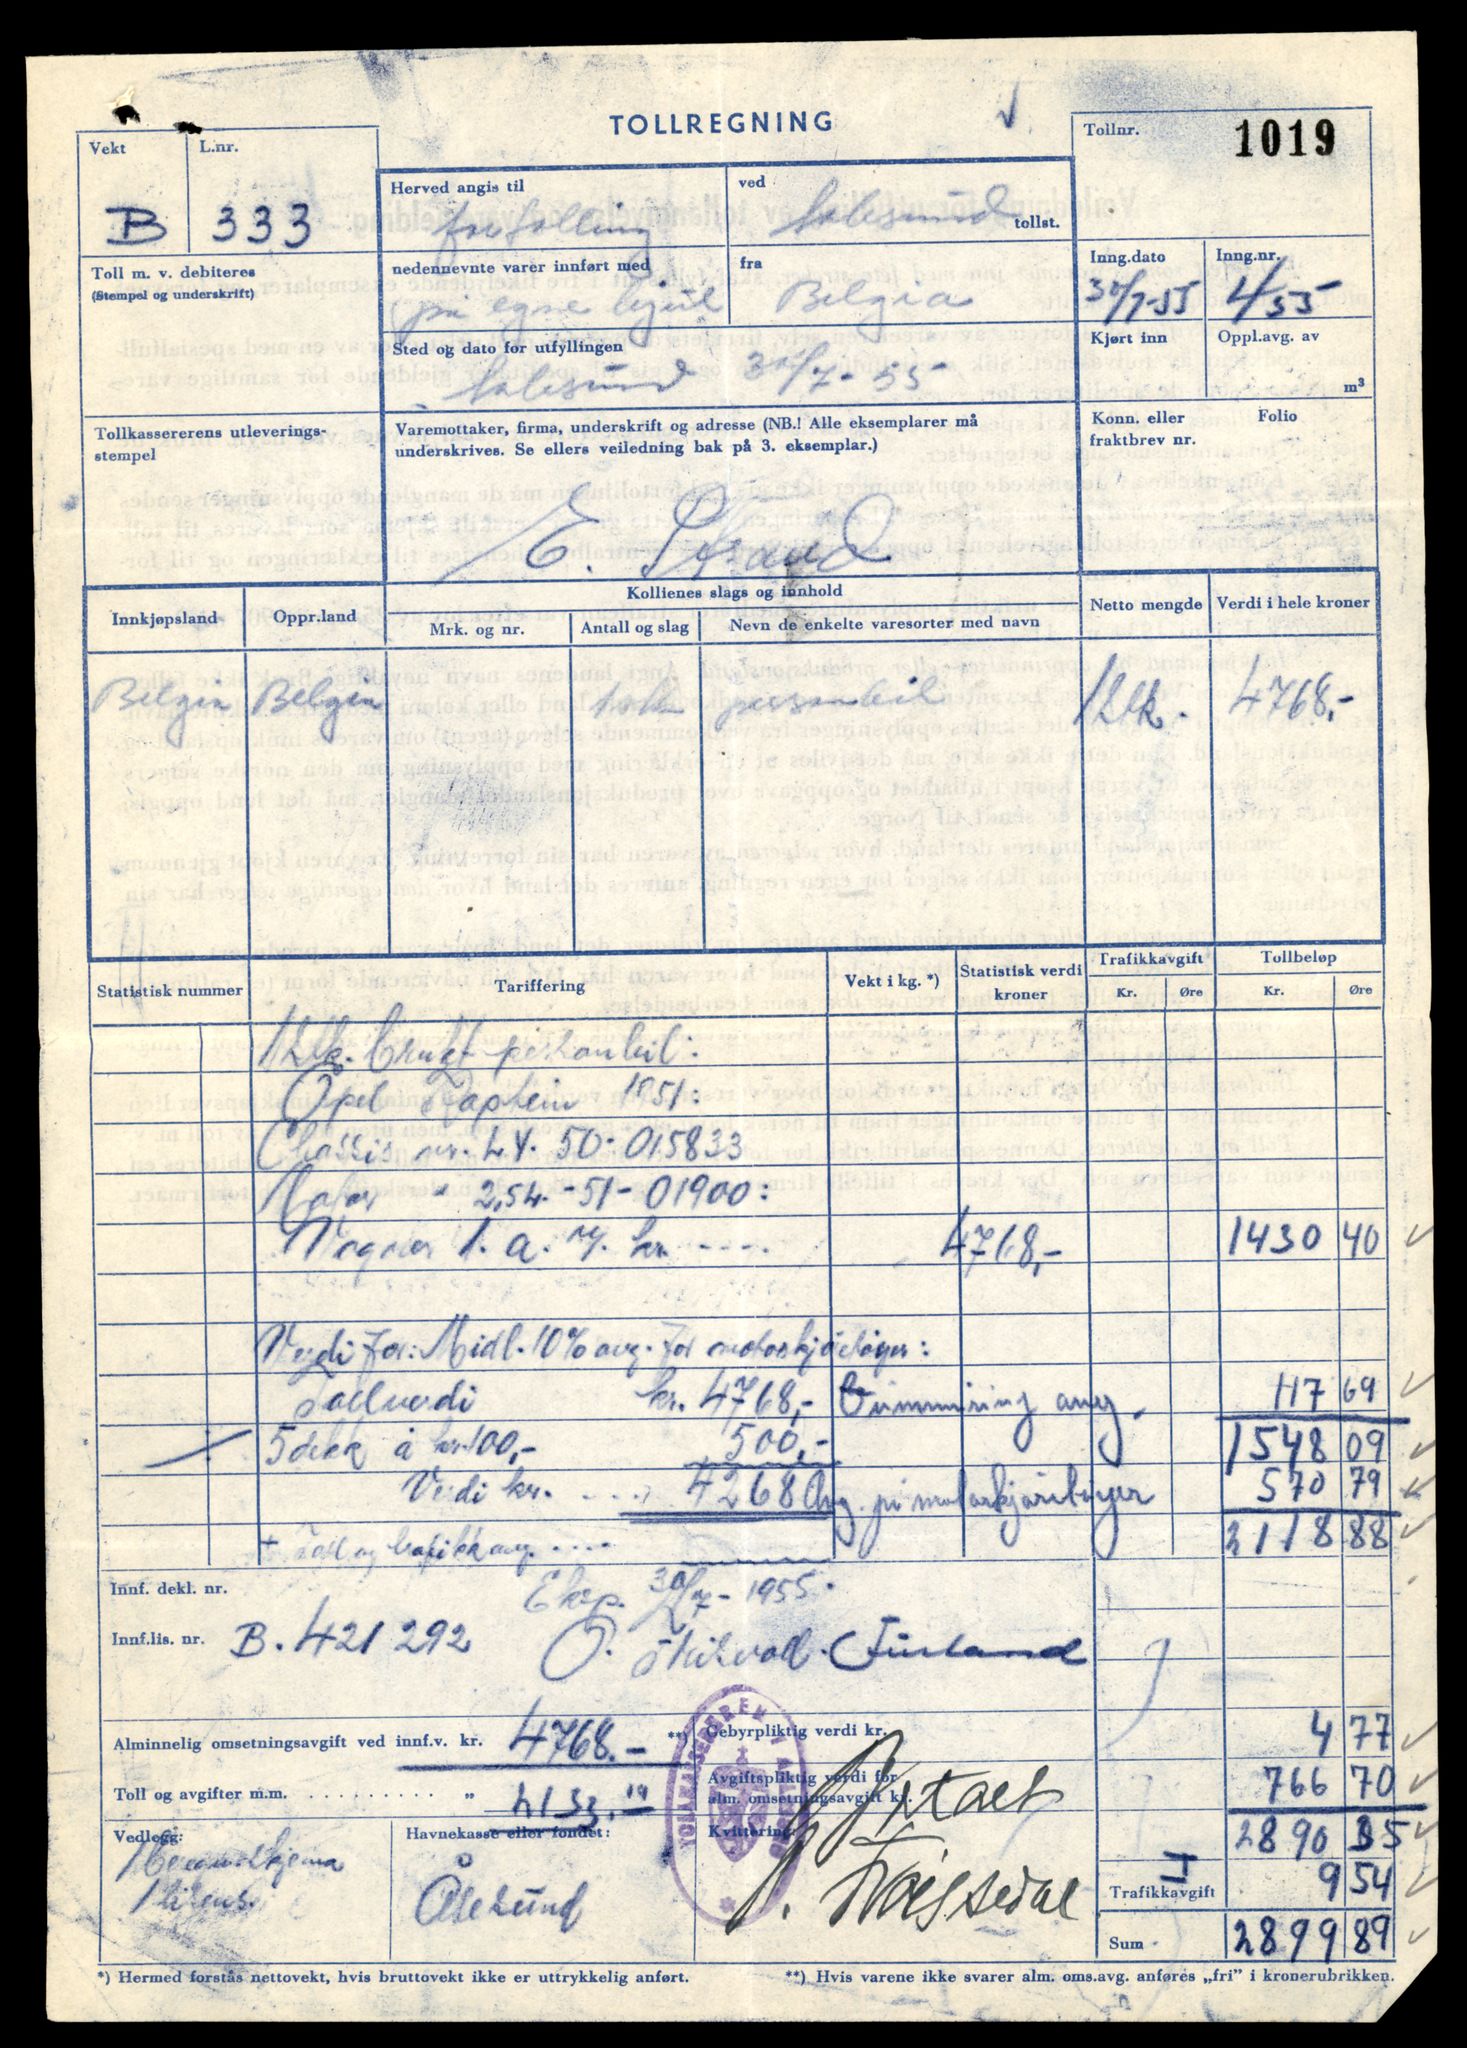 TOLLREGNING
Tollnr. 1019
Vekt
B
L.nr.
333
Herved angis til
fortolling
ved
Aalesund tollst.
Toll m. v. debiteres
(Stempel og underskrift)
nedennevnte varer innført med
på egne hjul
fra
Belgia
Inng.dato
30/7-55
Inng.nr.
1/55
Sted og dato for utfyllingen
Aalesund 30/7-55
Kjørt inn
Oppl.avg. av
m³
Tollkassererens utleverings-
stempel
Varemottaker, firma, underskrift og adresse (NB.! Alle eksemplarer må
underskrives. Se ellers veiledning bak på 3. eksemplar.)
E. Strand
Konn. eller
fraktbrev nr.
Folio
Innkjøpsland
Oppr.land
Kollienes slags og innhold
Mrk. og nr.
Antall og slag
Nevn de enkelte varesorter med navn
Netto mengde
Verdi i hele kroner
Belgia Belgia personbil 1 stk. 4768,-
Statistisk nummer
Tariffering
Vekt i kg. *)
Statistisk verdi
kroner
Trafikkavgift
Kr. Øre
Tollbeløp
Kr. Øre
1 stk. brukt personbil:
Opel Kaptein 1951:
Chassis nr. 50-015833
Motor " 2,54.-51-01900:
Vogner 1. a. kr. .... 4768,- 1430 40
Verdi for: Midl. 10% avg. for motorkjøretøyer:
Tollverdi kr. 4768,- Gummiring avg. 117 69
5 dekk à kr. 100,- 500,- 1548 09
Verdi kr. .... 4268 Avg. på motorkjøretøyer 570 79
+ Toll og trafikkavg. .... 2118 88
Innf. dekl. nr.
Eksp. 30/7-1955.
Innf.lis. nr. B. 421292
O.
Alminnelig omsetningsavgift ved innf.v. kr. 4768.-
**) Gebyrpliktig verdi kr.
4 77
Toll og avgifter m.m. .......... „
Avgiftspliktig verdi for
alm. omsetningsavgift kr.
766 70
Vedlegg:
1 lisens.
Havnekasse eller fondet:
Ålesund
Kvittering:
2890 35
Trafikkavgift 9 54
Sum 2899 89
*) Hermed forstås nettovekt, hvis bruttovekt ikke er uttrykkelig anført.
**) Hvis varene ikke svarer alm. oms.avg. anføres „fri” i kronerubrikken.